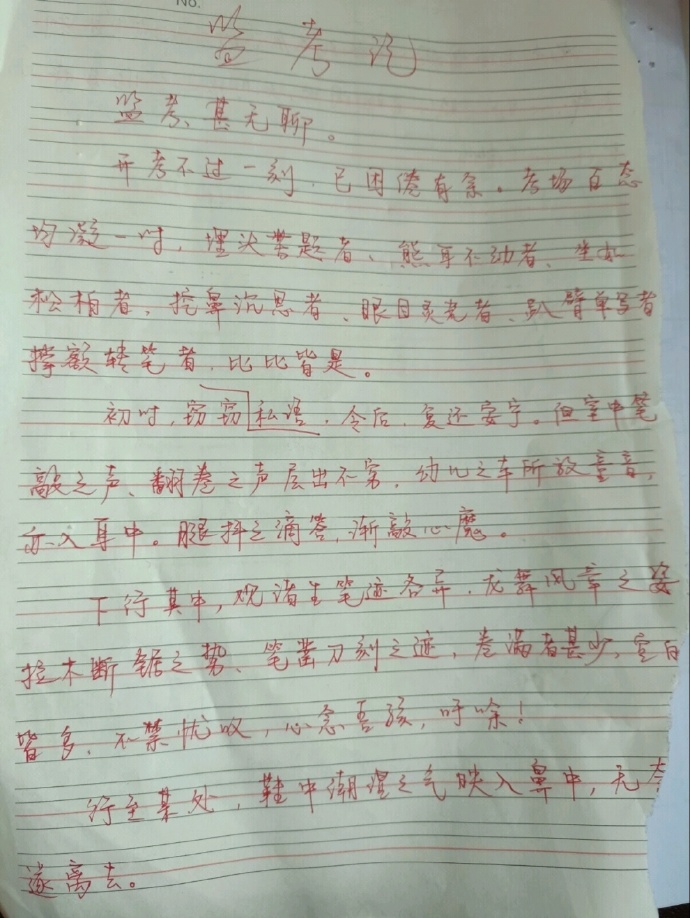 No.
监考记
监考、甚无聊。
开考不过一刻，已困倦有余。考场百态
均凝一时，埋头答题者、熊耳不动者、坐如
松柏者、挖鼻沉思者、眼目灵光者、趴臂单写者
撑额转笔者，比比皆是。
初时，窃窃私语，令后，复还安宁。但室中笔
敲之声、翻卷之声层出不穷，幼儿之车所放童音，
亦入耳中。腿抖之滴答，渐敲心魔。
下行其中，观诸生笔迹各异，龙舞风章之姿
拉木断锯之势、笔凿刀刻之迹，卷满者甚少，空白
皆多，不禁忧叹，心急吾孩，吁唉！
行至某处，鞋中潮湿之气映入鼻中，无奈
逐离去。